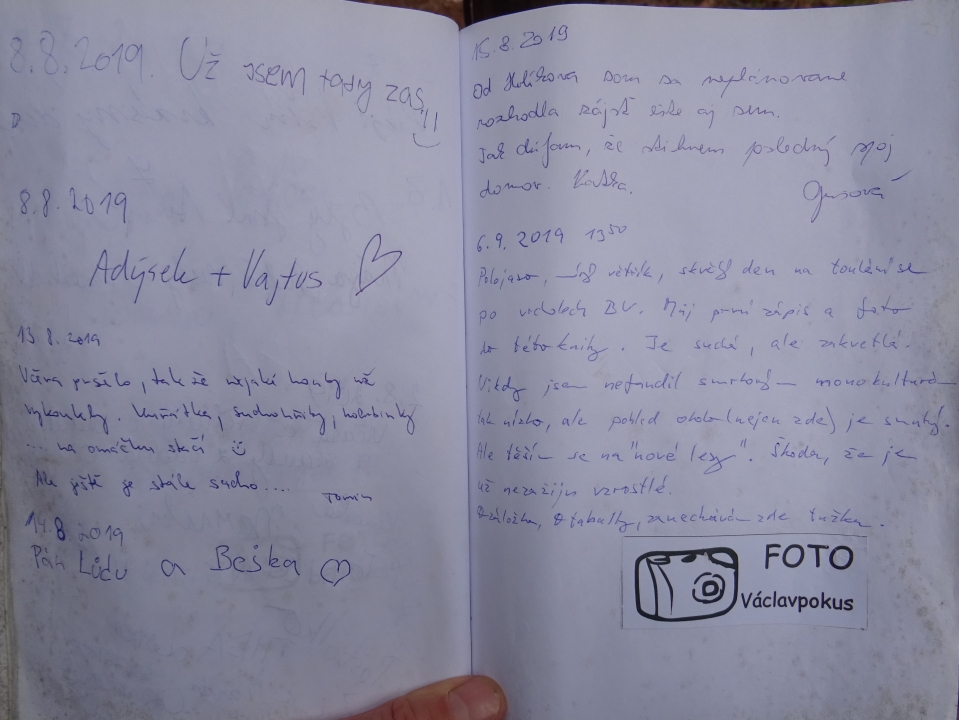 8.8.2019. Už jsem tady zas
8.8.2019
Adýsek + Vajtus
13.8.2019
Včera pršelo, tak že nějaké houby už
vykoukly. Kuřátka, suchohřiby, holubinky
... na omáčku stačí
Ale ještě je stále sucho....
Tomin
14.8.2019
Pán Lůdu a Beška
15.8.2019
Od som sa neplánovane
rozhodla zájsť ešte aj sem.
Tak dúfam, že stihnem posledný spoj
domov. Katka.
6.9.2019 13⁵⁰
Polojasno, větřík, skvělý den na toulání se
po vrcholech BV. Můj první zápis a foto
do této knihy. Je suchá, ale zakvetlá.
Nikdy jsem nefandil smrkovým monokulturám
tak nízko, ale pohled okolo (nejen zde) je smutný.
Ale těším se na "nové lesy". Škoda, že je
už nezažiju vzrostlé.
zanechávám zde tužku.
FOTO
Václavpokus